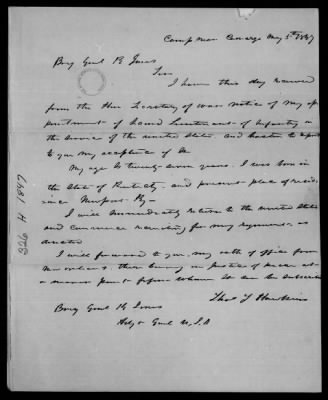 Camp near Cerralvo May 5th 1847
Brig Genl R Jones
Sir
I have this day received
from the Hon Secretary of War notice of my ap
pointment of Second Lieutenant of Infantry in
the service of the United States and hasten to report
to you my acceptance of the
My age is twenty seven years. I was born in
the State of Kentucky and present place of resid
ence Newport Ky-
I will immediately return to the United States
and commence recruiting for my regiment as
directed
I will forward to you my oath of office from
New orleans there being no Justice of peace at
a nearer point before whom it can be subscribed
Thos T Hawkins
Brig Genl R Jones
Adjt Genl U.S.A
326 H 1847